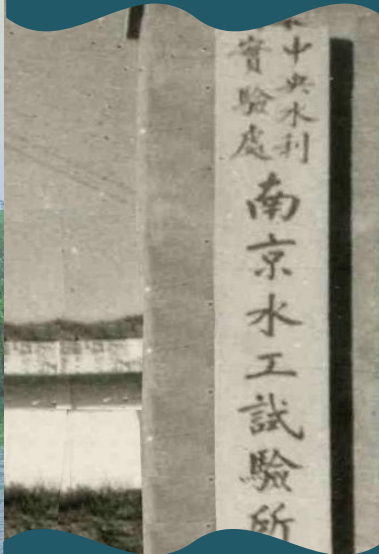 中央水利
實驗處
南京水工試驗所